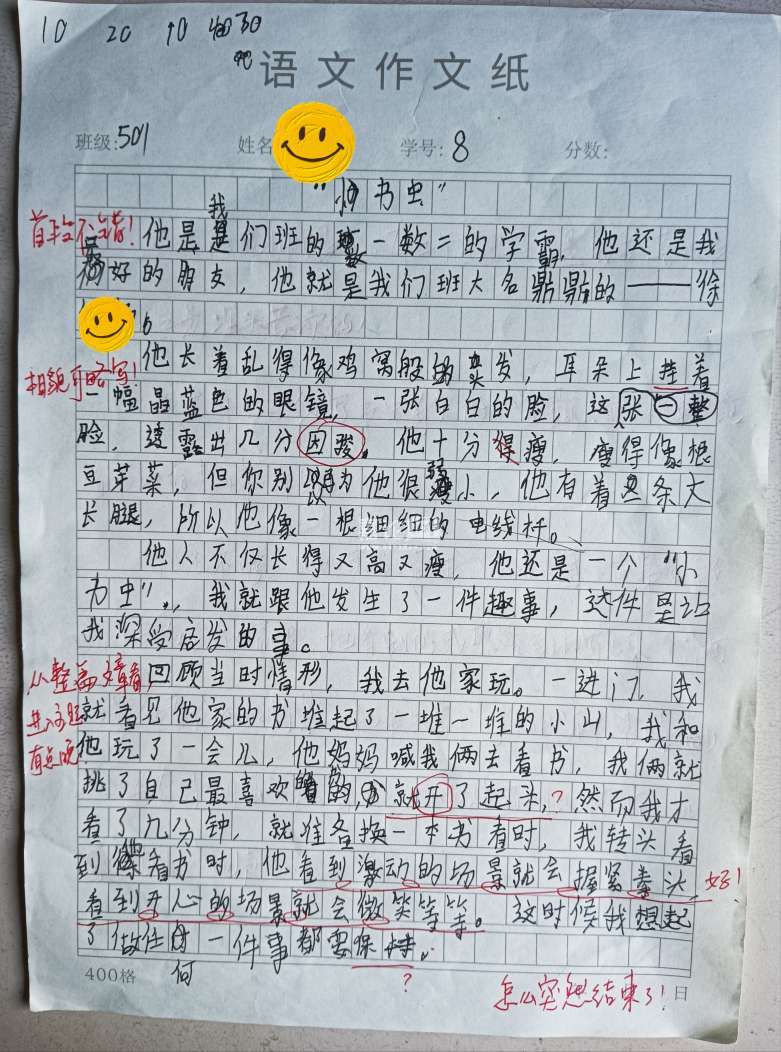 10 20 10 403日
吧
语文作文纸
班级:501 姓名 学号:8 分数:
"小书虫"
首段不错!
他是我们班的数一数二的学霸,他还是我
最好的朋友,他就是我们班大名鼎鼎的——徐
。
相貌可略写!
他长着乱得像鸡窝般的头发,耳朵上挂着
一幅晶蓝色的眼镜,一张白白的脸,这张一整
脸,透露出几分因骏。他十分得瘦,瘦得像根
豆芽菜,但你别以为他很弱小,他有着条大
长腿,所以他像一根细细的电线杆。
他人不仅长得又高又瘦,他还是一个"小
书虫"。,我就跟他发生了一件趣事,这件是让
我深受启发的事。
从整篇文章看,进入主题有点晚
回顾当时情形,我去他家玩。一进门,我
就看见他家的书堆起了一堆一堆的小山,我和
他玩了一会儿,他妈妈喊我俩去看书,我俩就
挑了自己最喜欢看的,就开了起来,?然而我才
看了几分钟,就准备换一本书看时,我转头看
到徐看书时,他看到激动的场景就会握紧拳头,好!
看到开心的场景就会微笑等等。这时候我想起
了做任何一件事都要保持。
?
400格
怎么突然结束了!
日